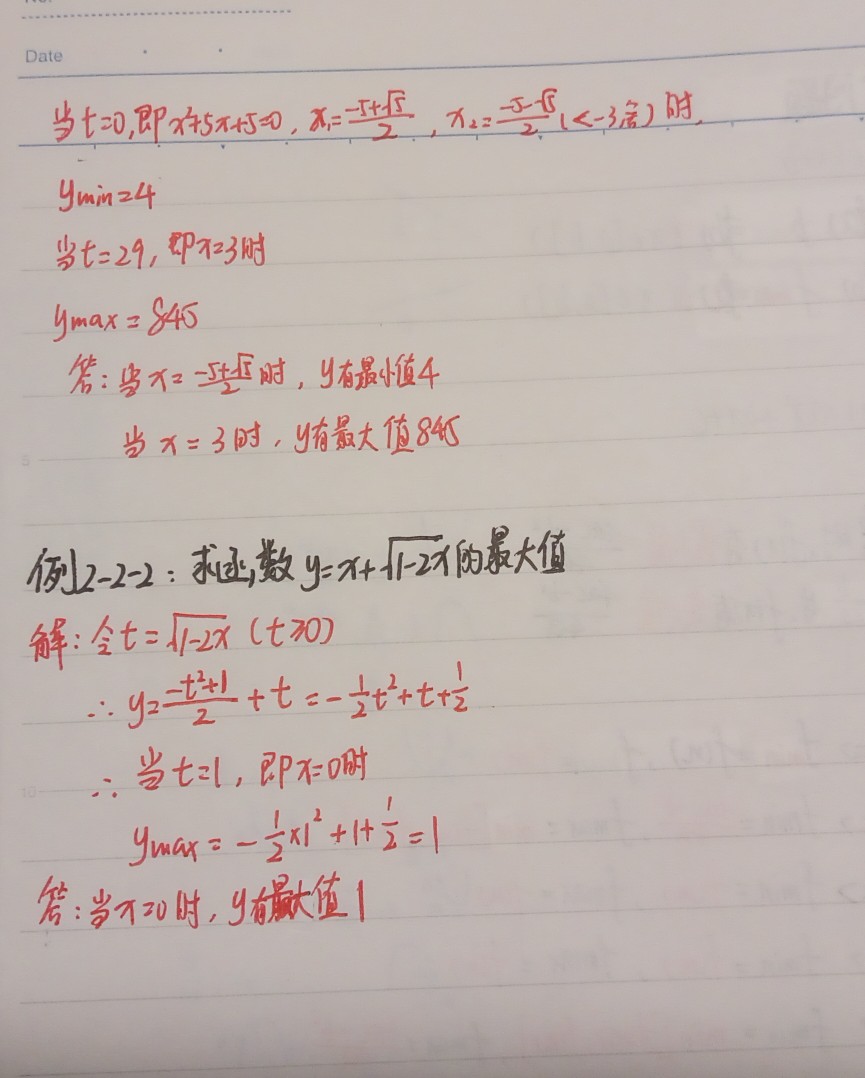 Date
当t=0,即x²+5x+5=0,x₁=\frac{-5+√5}{2},x₂=\frac{-5-√5}{2}(<-3舍)时,
ymin=4
当t=29,即x=3时
ymax=845
答:当x=\frac{-5+√5}{2}时,y有最小值4
当x=3时,y有最大值845
5
例2-2-2:求函数y=x+√(1-2x)的最大值
解:令t=√(1-2x)(t≥0)
∴y=\frac{-t²+1}{2}+t=-\frac{1}{2}t²+t+\frac{1}{2}
10
∴当t=1,即x=0时
ymax=-\frac{1}{2}×1²+1+\frac{1}{2}=1
答:当x=0时,y有最大值1